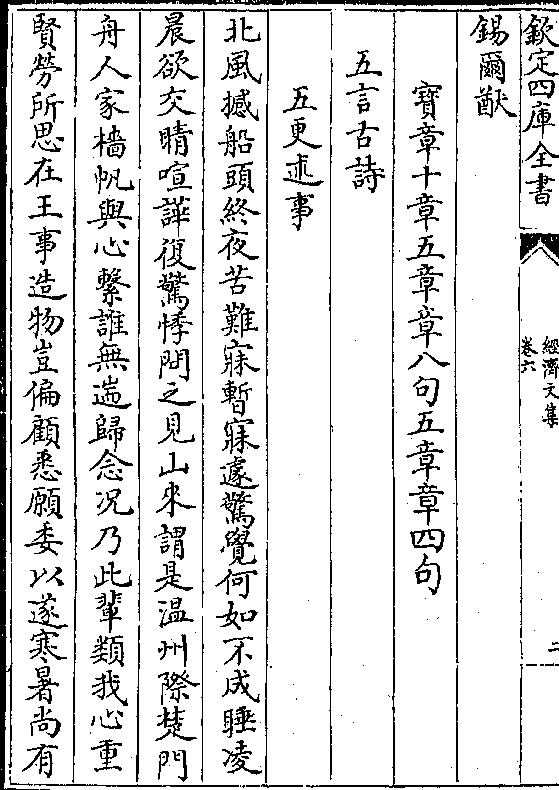 欽定四庫全書
經濟文集
卷六
二
錫爾猷
寶章十章五章章八句五章章四句
五言古詩
五更述事
北風撼船頭終夜苦難寐暫寐遽驚覺何如不成睡凌
晨欲交睛喧譁復驚悸問之見山來謂是温州際楚門
舟人家檣帆與心繫誰無遄歸念况乃此輩類我心重
賢勞所思在王事造物豈偏顧悉願委以遂寒暑尚有